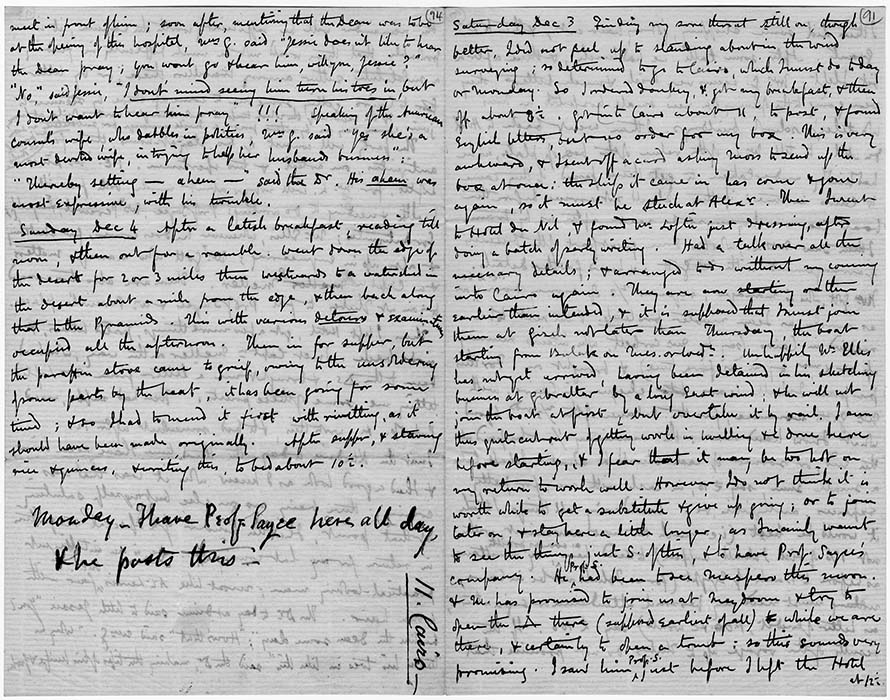 94
meet in front of him; soon after, mentioning that the Dean was to be
at the opening of this hospital, Mrs G. said "Jessie does n't like to hear
the Dean pray; you wont go & hear him, will you, Jessie?"
"No," said Jessie, "I don't mind seeing him turn his toes in, but
I don't want to hear him pray" !!! Speaking of the American
consul's wife, who dabbles in politics, Mrs G. said "Yes she's a
most devoted wife, in trying to help her husbands business":
"Thereby setting — ahem —" said the Dr. His ahem was
most expressive, with his twinkle.
Sunday Dec 4 After a latish breakfast, reading till
noon, & then out for a ramble. Went down the edge of
the desert for 2 or 3 miles then westwards to a watershed in
the desert about a mile from the edge, & then back along
that to the Pyramids. This with various detours & examinations
occupied all the afternoon. Then in for supper, but
the paraffin stove came to grief, owing to the unsoldering
of some parts by the heat, it has been going for some
time; & so I had to mend it first with rivetting, as it
should have been made originally. After supper, & stewing
rice & quinces, & writing this, to bed about 10½.
Monday – I have Prof. Sayce here all day,
& he posts this –
11. Cairo –
91
Saturday Dec 3 Finding my sore throat still on, though
better, I did not feel up to standing about in the wind
surveying; so determined to go to Cairo, which I must do to day
or Monday. So I ordered donkey, & got my breakfast, & then
off about 8½. Got into Cairo about 11, to post, & found
English letters, but no order for my box. This is very
awkward, & I sent off a card asking Moss to send up the
box at once: the ship it came in has come & gone
again, so it must be stuck at Alexa. Then I went
to Hotel du Nil, & found Mr Loftie just dressing, after
doing a batch of early writing. Had a talk over all the
necessary details; & arranged to do without my coming
into Cairo again. They are now starting rather
earlier than intended, & it is supposed that I must join
them at Gizeh not later than Thursday the boat
starting from Bulak on Tues. or Wed. Unhappily Mr Ellis
has not yet arrived, having been detained in his sketching
business at Gibraltar by a long East wind; & he will not
join the boat at first, but overtake it by rail. I am
thus quite cut out of getting work in levelling &c done here
before starting, & I fear that it may be too hot on
my return to work well. However I do not think it is
worth while to get a substitute & give up going; or to join
later on, & stay here a little longer, as I mainly want
to see the things just S. of this, & to have Prof. Sayce's
company. He, Prof. S. had been to see Maspero this noon.
& M. has promised to join us at Meydoum & try to
open the Δ there (supposed earliest of all) while we are
there, & certainly to open a tomb: so this sounds very
promising. I saw him, Prof. S. just before I left the Hotel
at 12½.